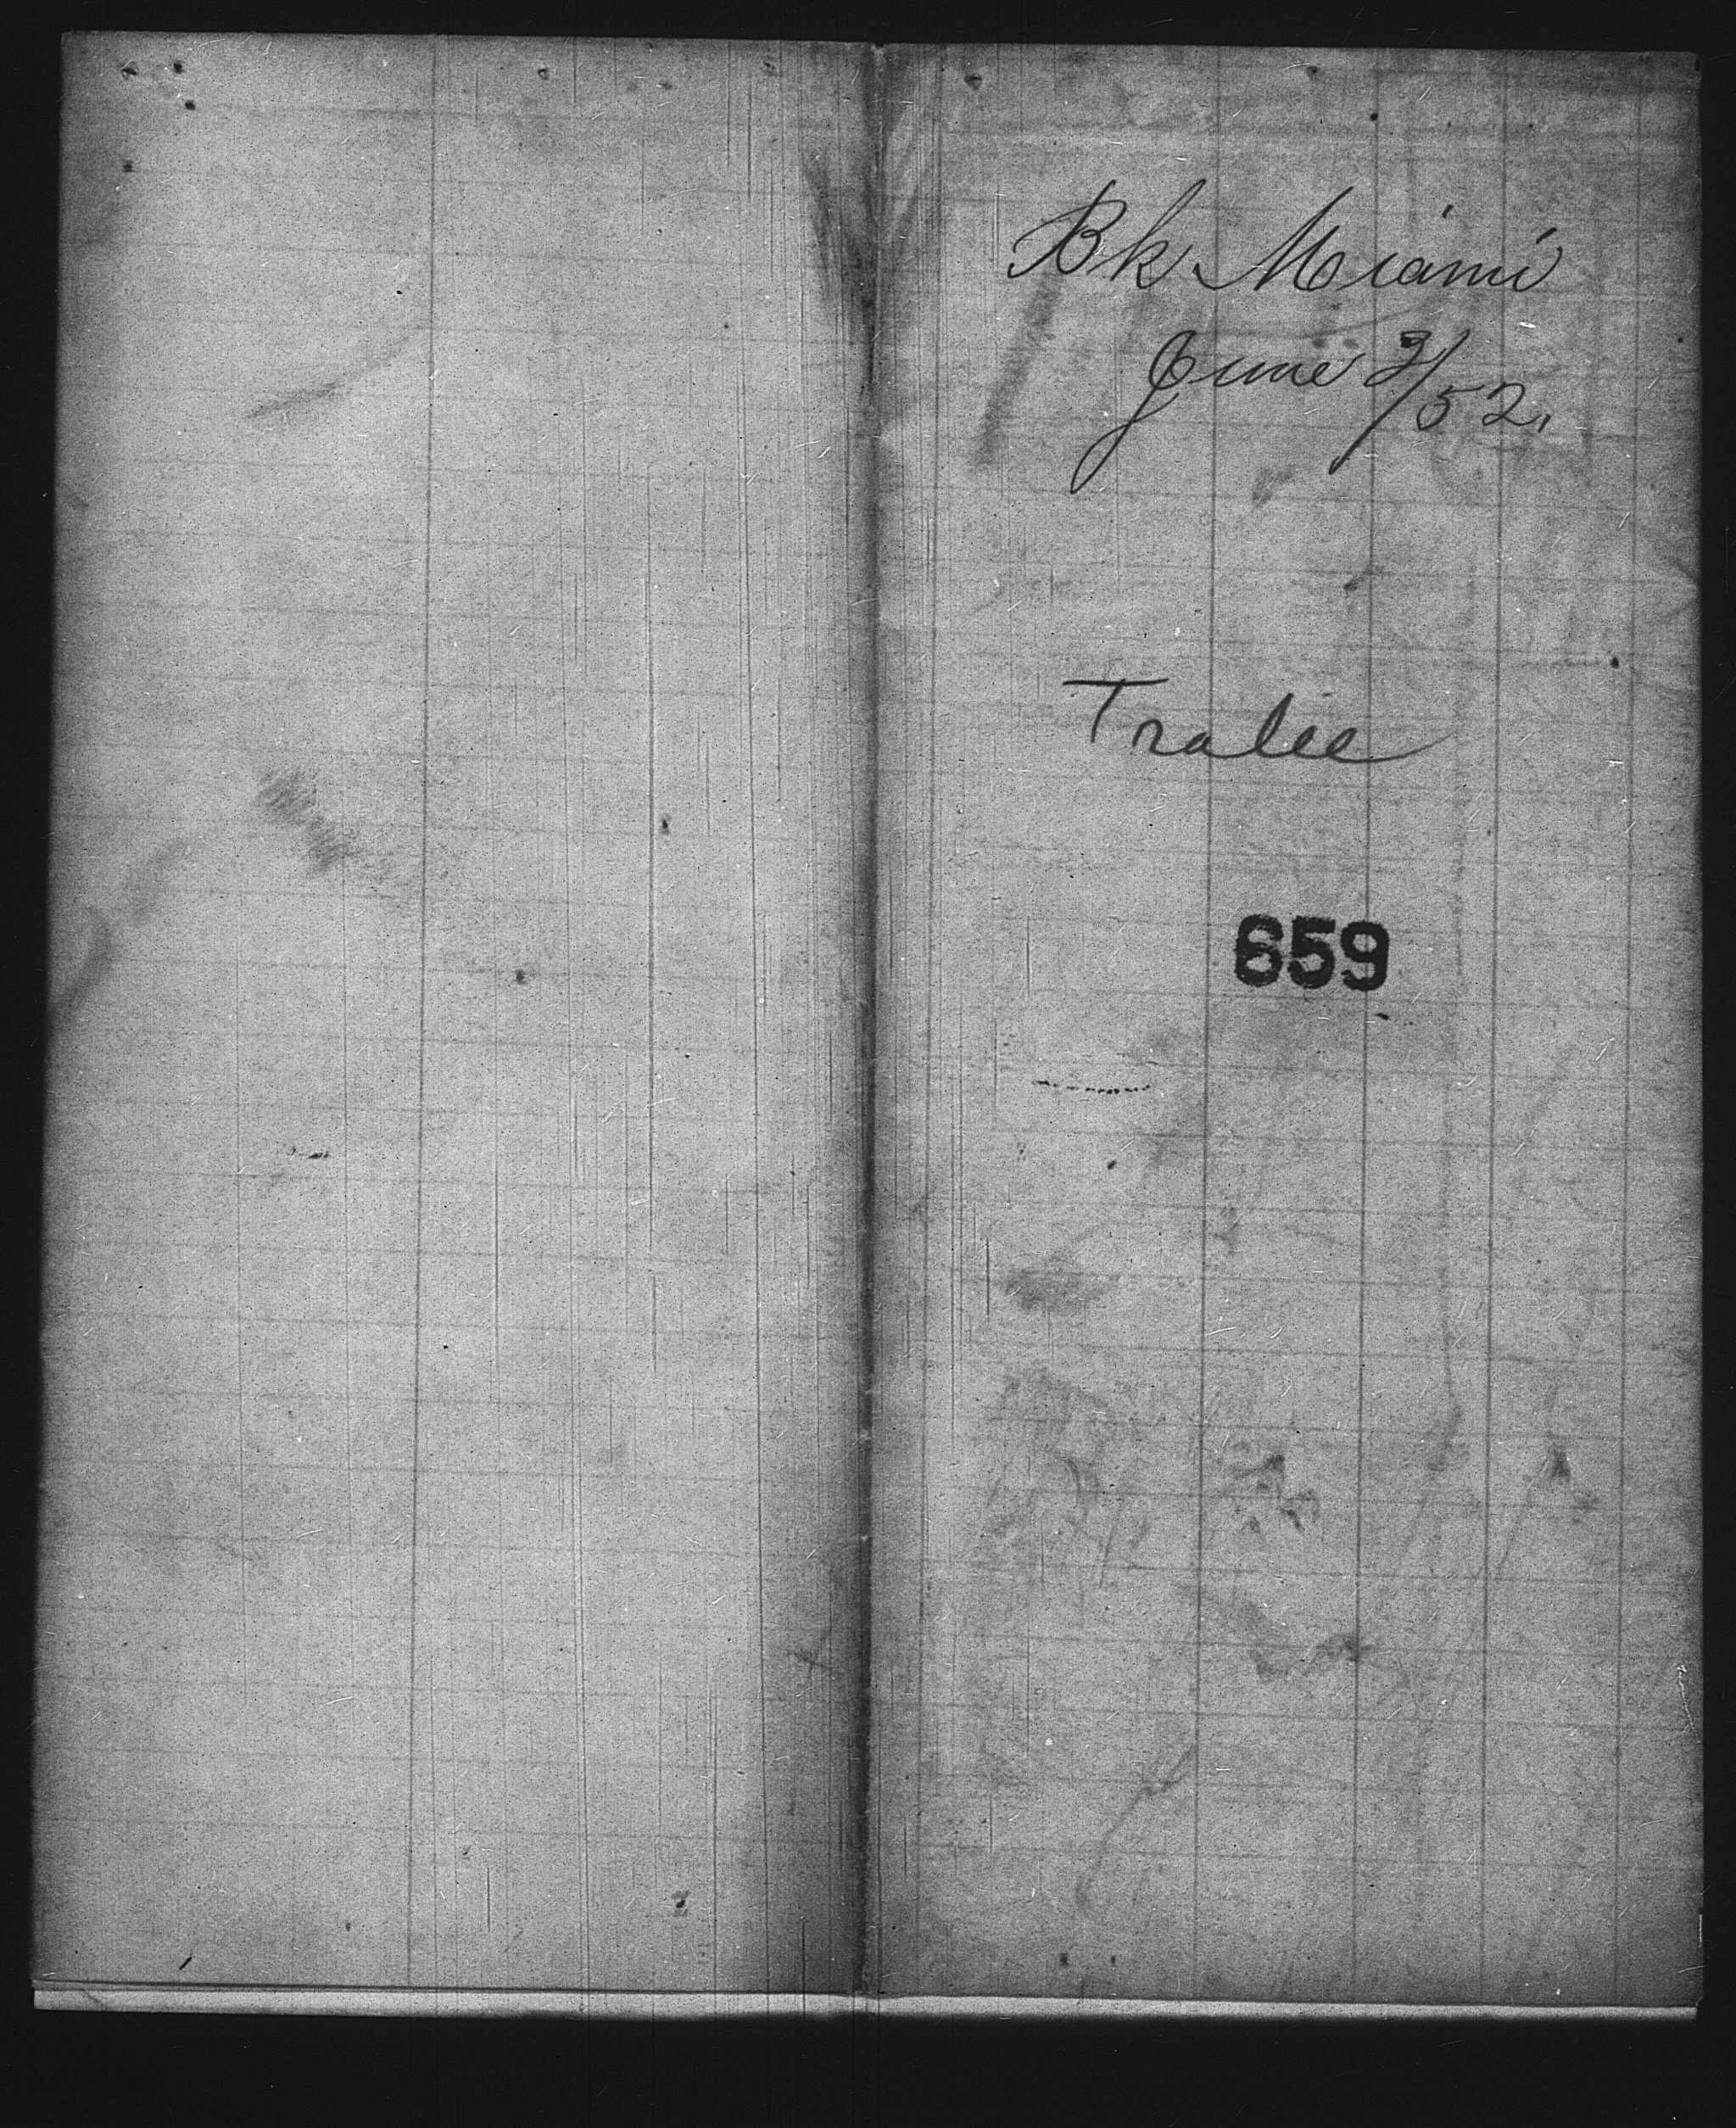 Bk. Miami
June 3/52.
Tralee
659